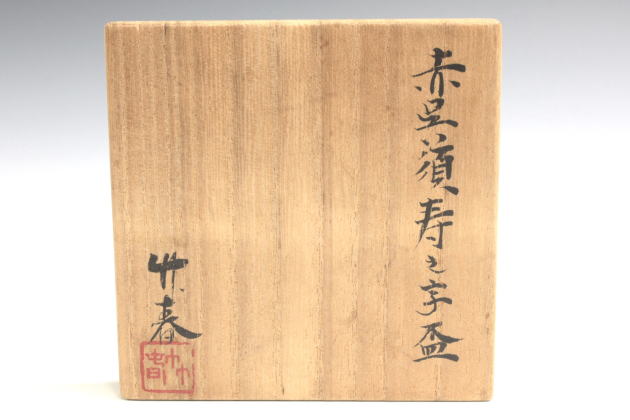 赤呉須寿之字盃
竹春
竹春